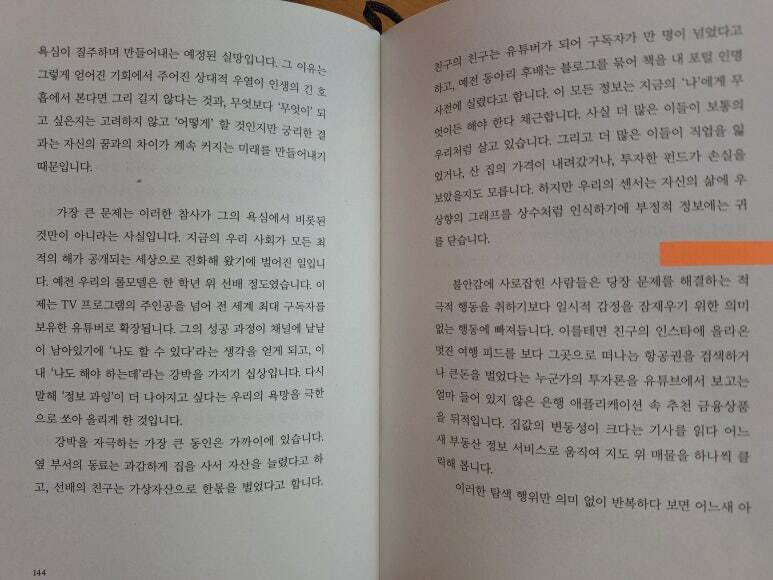 욕심이 질주하며 만들어내는 예정된 실망입니다. 그 이유는
그렇게 얻어진 기회에서 주어진 상대적 우열이 인생의 긴 호
흡에서 본다면 그리 길지 않다는 것과, 무엇보다 ‘무엇이’ 되
고 싶은지는 고려하지 않고 ‘어떻게’ 할 것인지만 궁리한 결
과는 자신의 꿈과의 차이가 계속 커지는 미래를 만들어내기
때문입니다.
가장 큰 문제는 이러한 참사가 그의 욕심에서 비롯된
것만이 아니라는 사실입니다. 지금의 우리 사회가 모든 최
적의 해가 공개되는 세상으로 진화해 왔기에 벌어진 일입니
다. 예전 우리의 롤모델은 한 학년 위 선배 정도였습니다. 이
제는 TV 프로그램의 주인공을 넘어 전 세계 최대 구독자를
보유한 유튜버로 확장됩니다. 그의 성공 과정이 채널에 낱낱
이 남아있기에 ‘나도 할 수 있다’라는 생각을 얻게 되고, 이
내 ‘나도 해야 하는데’라는 강박을 가지기 십상입니다. 다시
말해 ‘정보 과잉’이 더 나아지고 싶다는 우리의 욕망을 극한
으로 쏘아 올리게 한 것입니다.
강박을 자극하는 가장 큰 동인은 가까이에 있습니다.
옆 부서의 동료는 과감하게 집을 사서 자산을 늘렸다고 하
고, 선배의 친구는 가상자산으로 한몫을 벌었다고 합니다.
144
친구의 친구는 유튜버가 되어 구독자가 만 명이 넘었다고
하고, 예전 동아리 후배는 블로그를 묶어 책을 내 포털 인명
사전에 실렸다고 합니다. 이 모든 정보는 지금의 ‘나’에게 무
엇이든 해야 한다 채근합니다. 사실 더 많은 이들이 보통의
우리처럼 살고 있습니다. 그리고 더 많은 이들이 직업을 잃
었거나, 산 집의 가격이 내려갔거나, 투자한 펀드가 손실을
보았을지도 모릅니다. 하지만 우리의 센서는 자신의 삶에 우
상향의 그래프를 상수처럼 인식하기에 부정적 정보에는 귀
를 닫습니다.
불안감에 사로잡힌 사람들은 당장 문제를 해결하는 적
극적 행동을 취하기보다 일시적 감정을 잠재우기 위한 의미
없는 행동에 빠져듭니다. 이를테면 친구의 인스타에 올라온
멋진 여행 피드를 보다 그곳으로 떠나는 항공권을 검색하거
나 큰돈을 벌었다는 누군가의 투자론을 유튜브에서 보고는
얼마 들어 있지 않은 은행 애플리케이션 속 추천 금융상품
을 뒤적입니다. 집값의 변동성이 크다는 기사를 읽다 어느
새 부동산 정보 서비스로 움직여 지도 위 매물을 하나씩 클
릭해 봅니다.
이러한 탐색 행위만 의미 없이 반복하다 보면 어느새 아